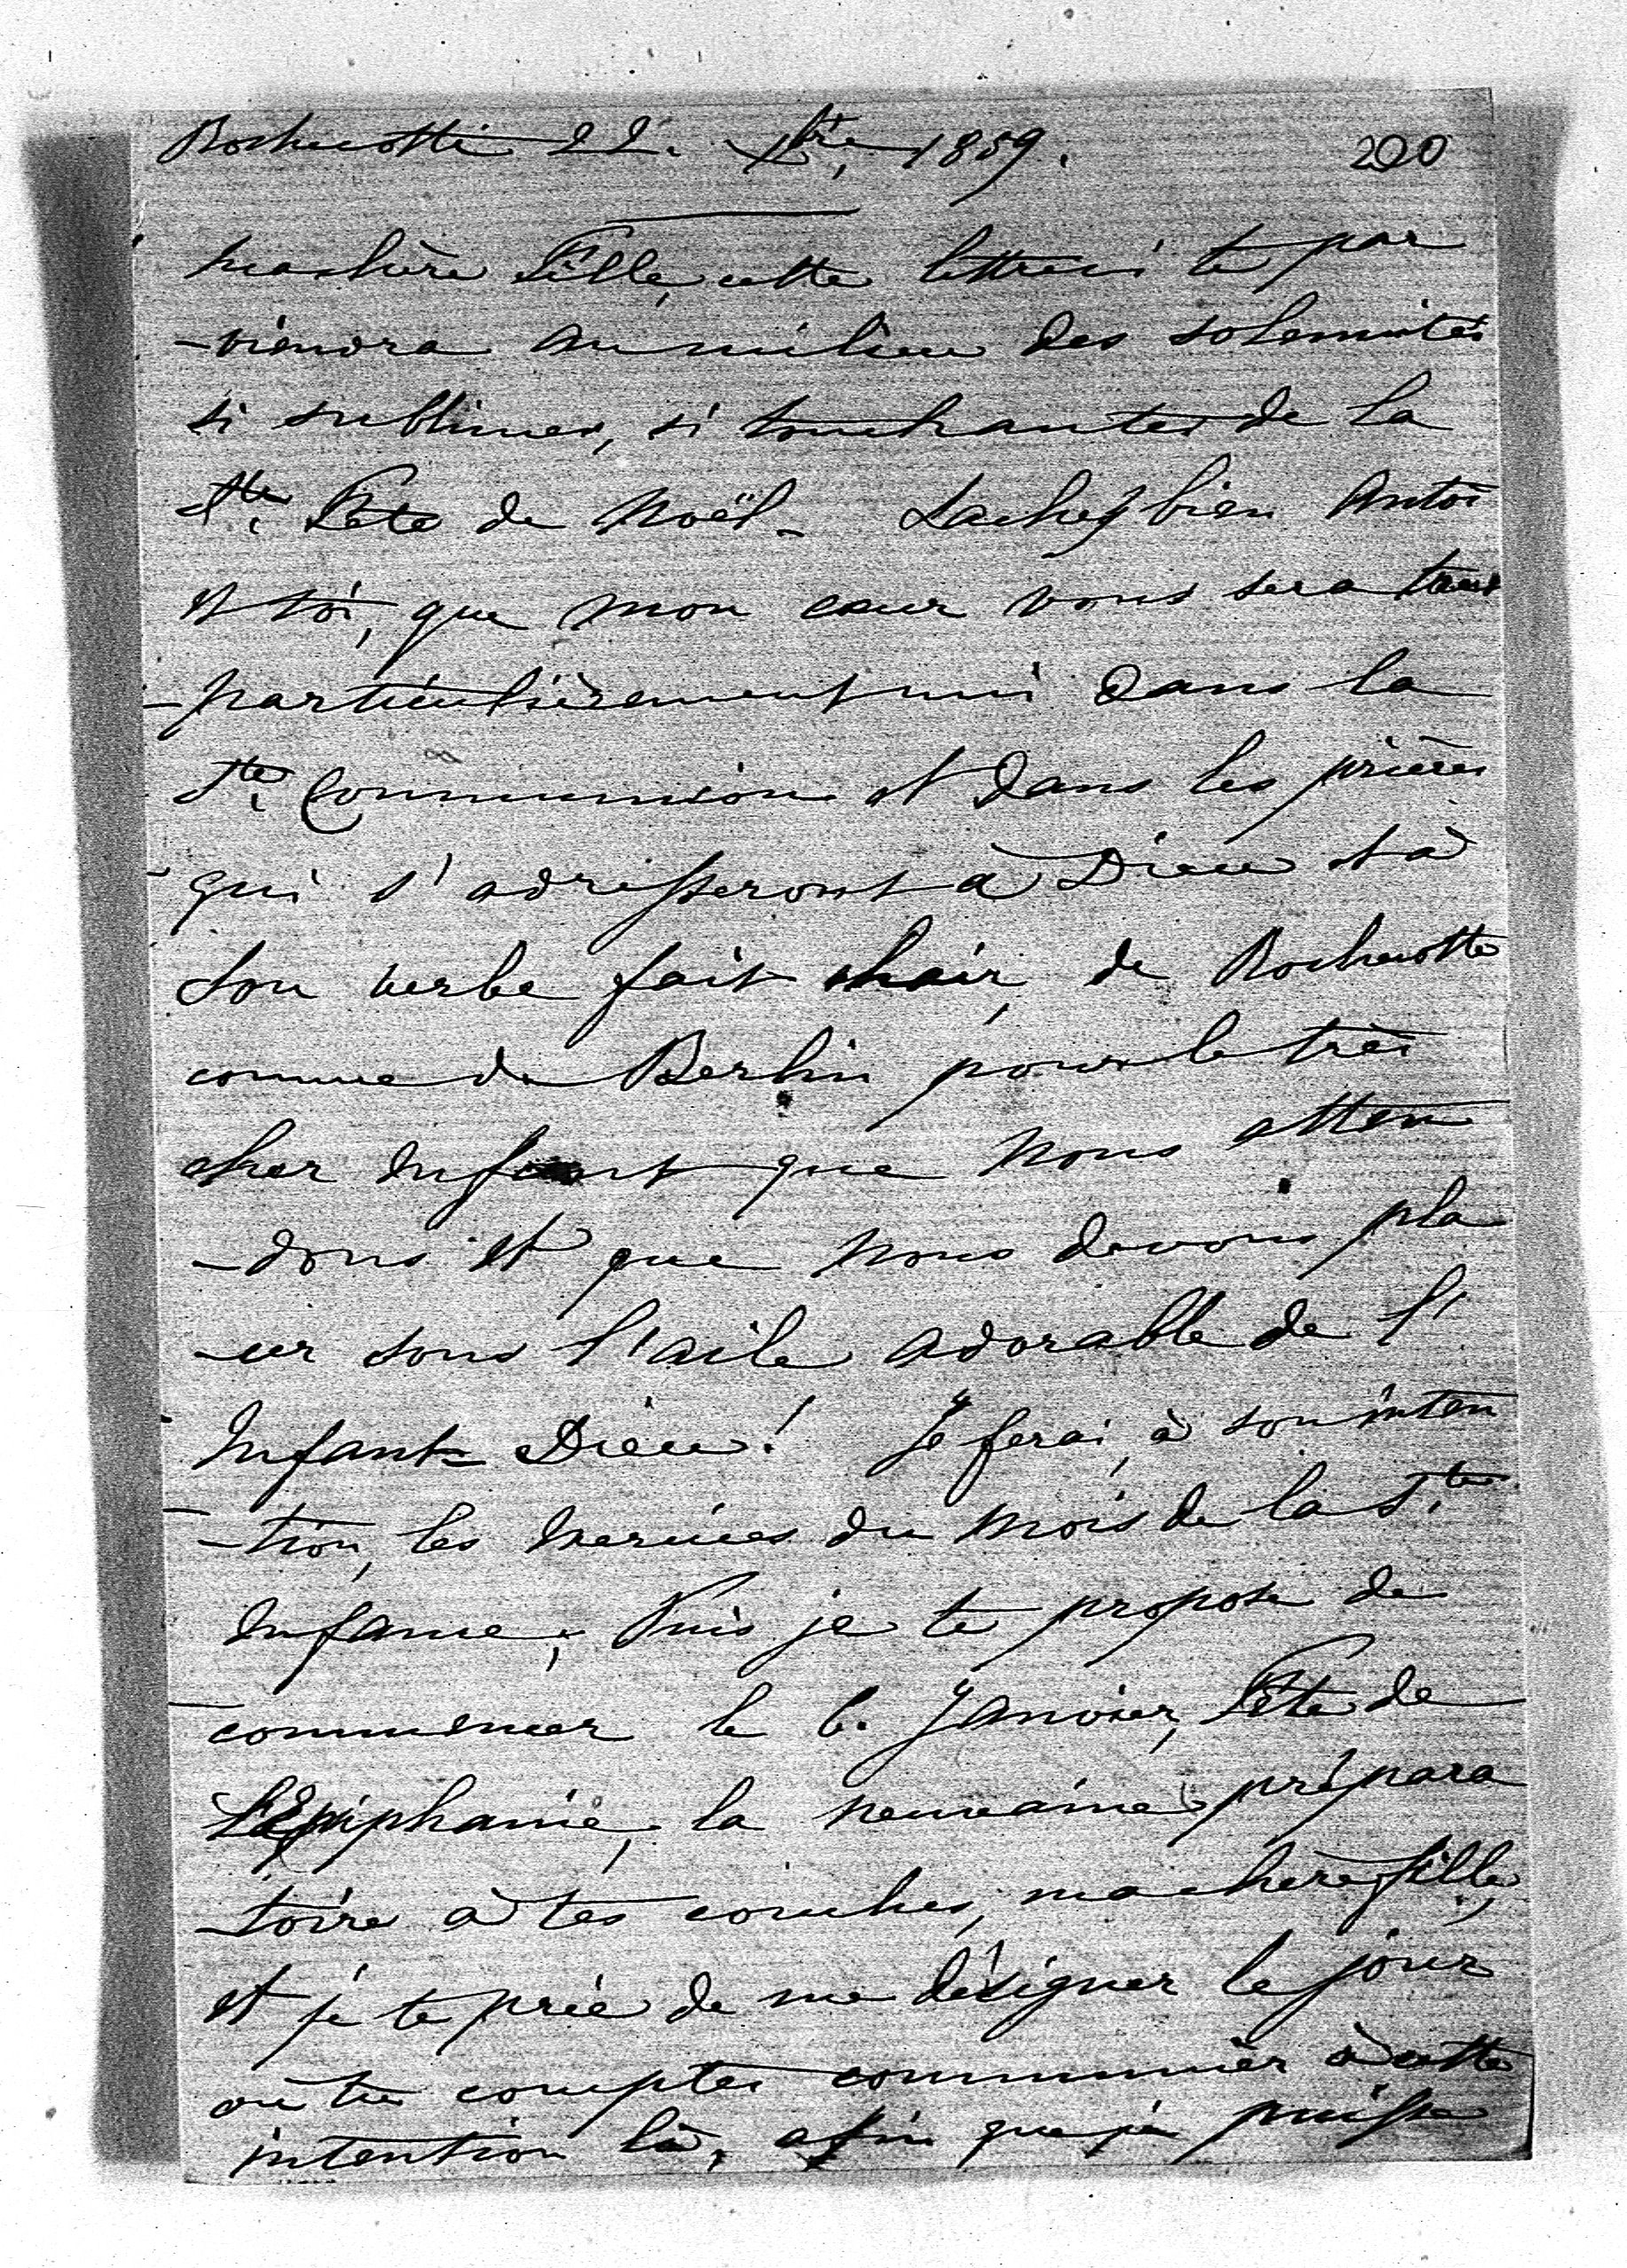 Rochecotte 22. Xbre, 1859. 200
ma chère fille, cette lettre-ci te par
-viendra au milieu des solemnités
si sublimes, si touchantes de la
Ste fête de Noël. Sachez bien Antoi
et toi, que mon cœur vous sera tout
particulièrement uni dans la
Ste Communion et dans les prières
qui s'adresseront à Dieu et à
Son verbe fait chair, de Rochecotte
comme de Berlin pour le très
cher Enfant que nous atten
-dons et que nous devons pla
-cer sous l'aile adorable de l'
Enfant Dieu! Je ferai, à son inten
-tion, les exercices du mois de la Ste
Enfance, Puis je te propose de
commencer le 6. Janvier, fête de
L'Epiphanie, la neuvaine prépara
-toire à tes couches, ma chère fille,
et je te prie de me désigner le jour
où tu comptes communier à cette
intention là, afin que je puisse